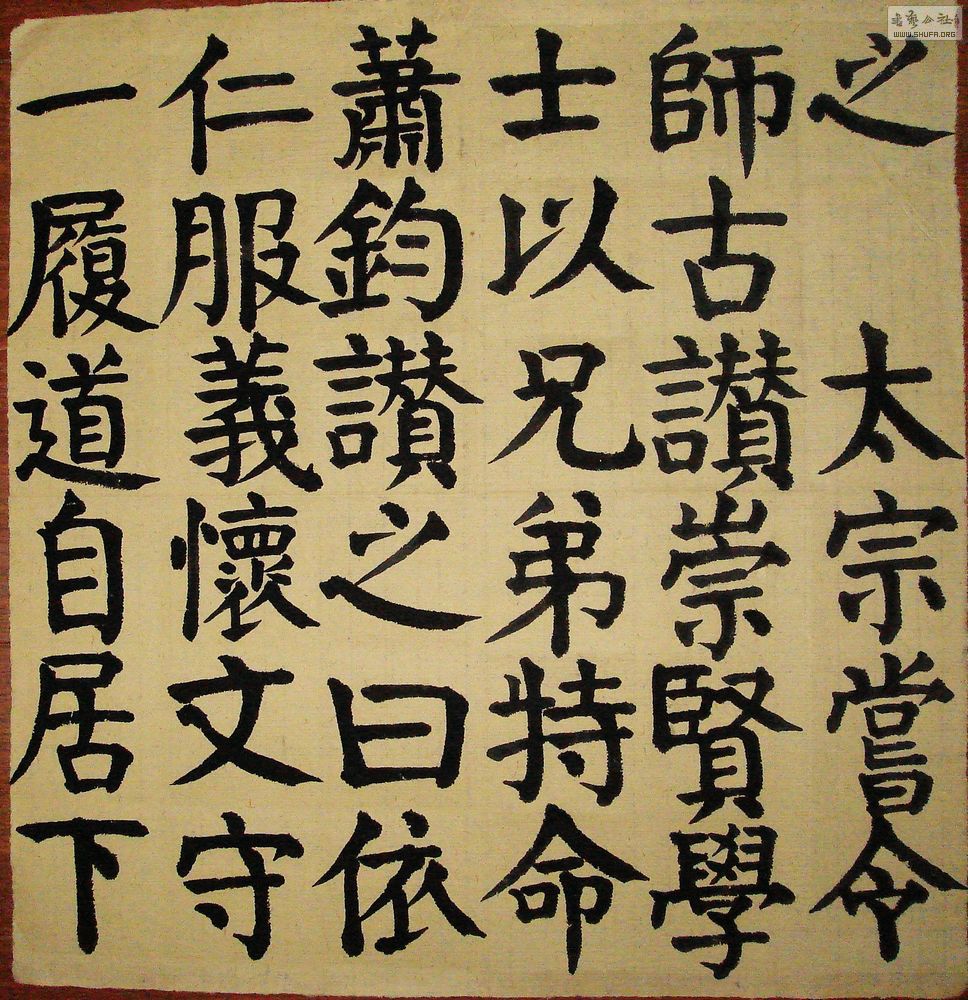 之 太宗嘗令
師古讃崇賢學
士以兄弟特命
蕭鈞讃之曰依
仁服義懷文守
一履道自居下
WWW.SHUFA.ORG